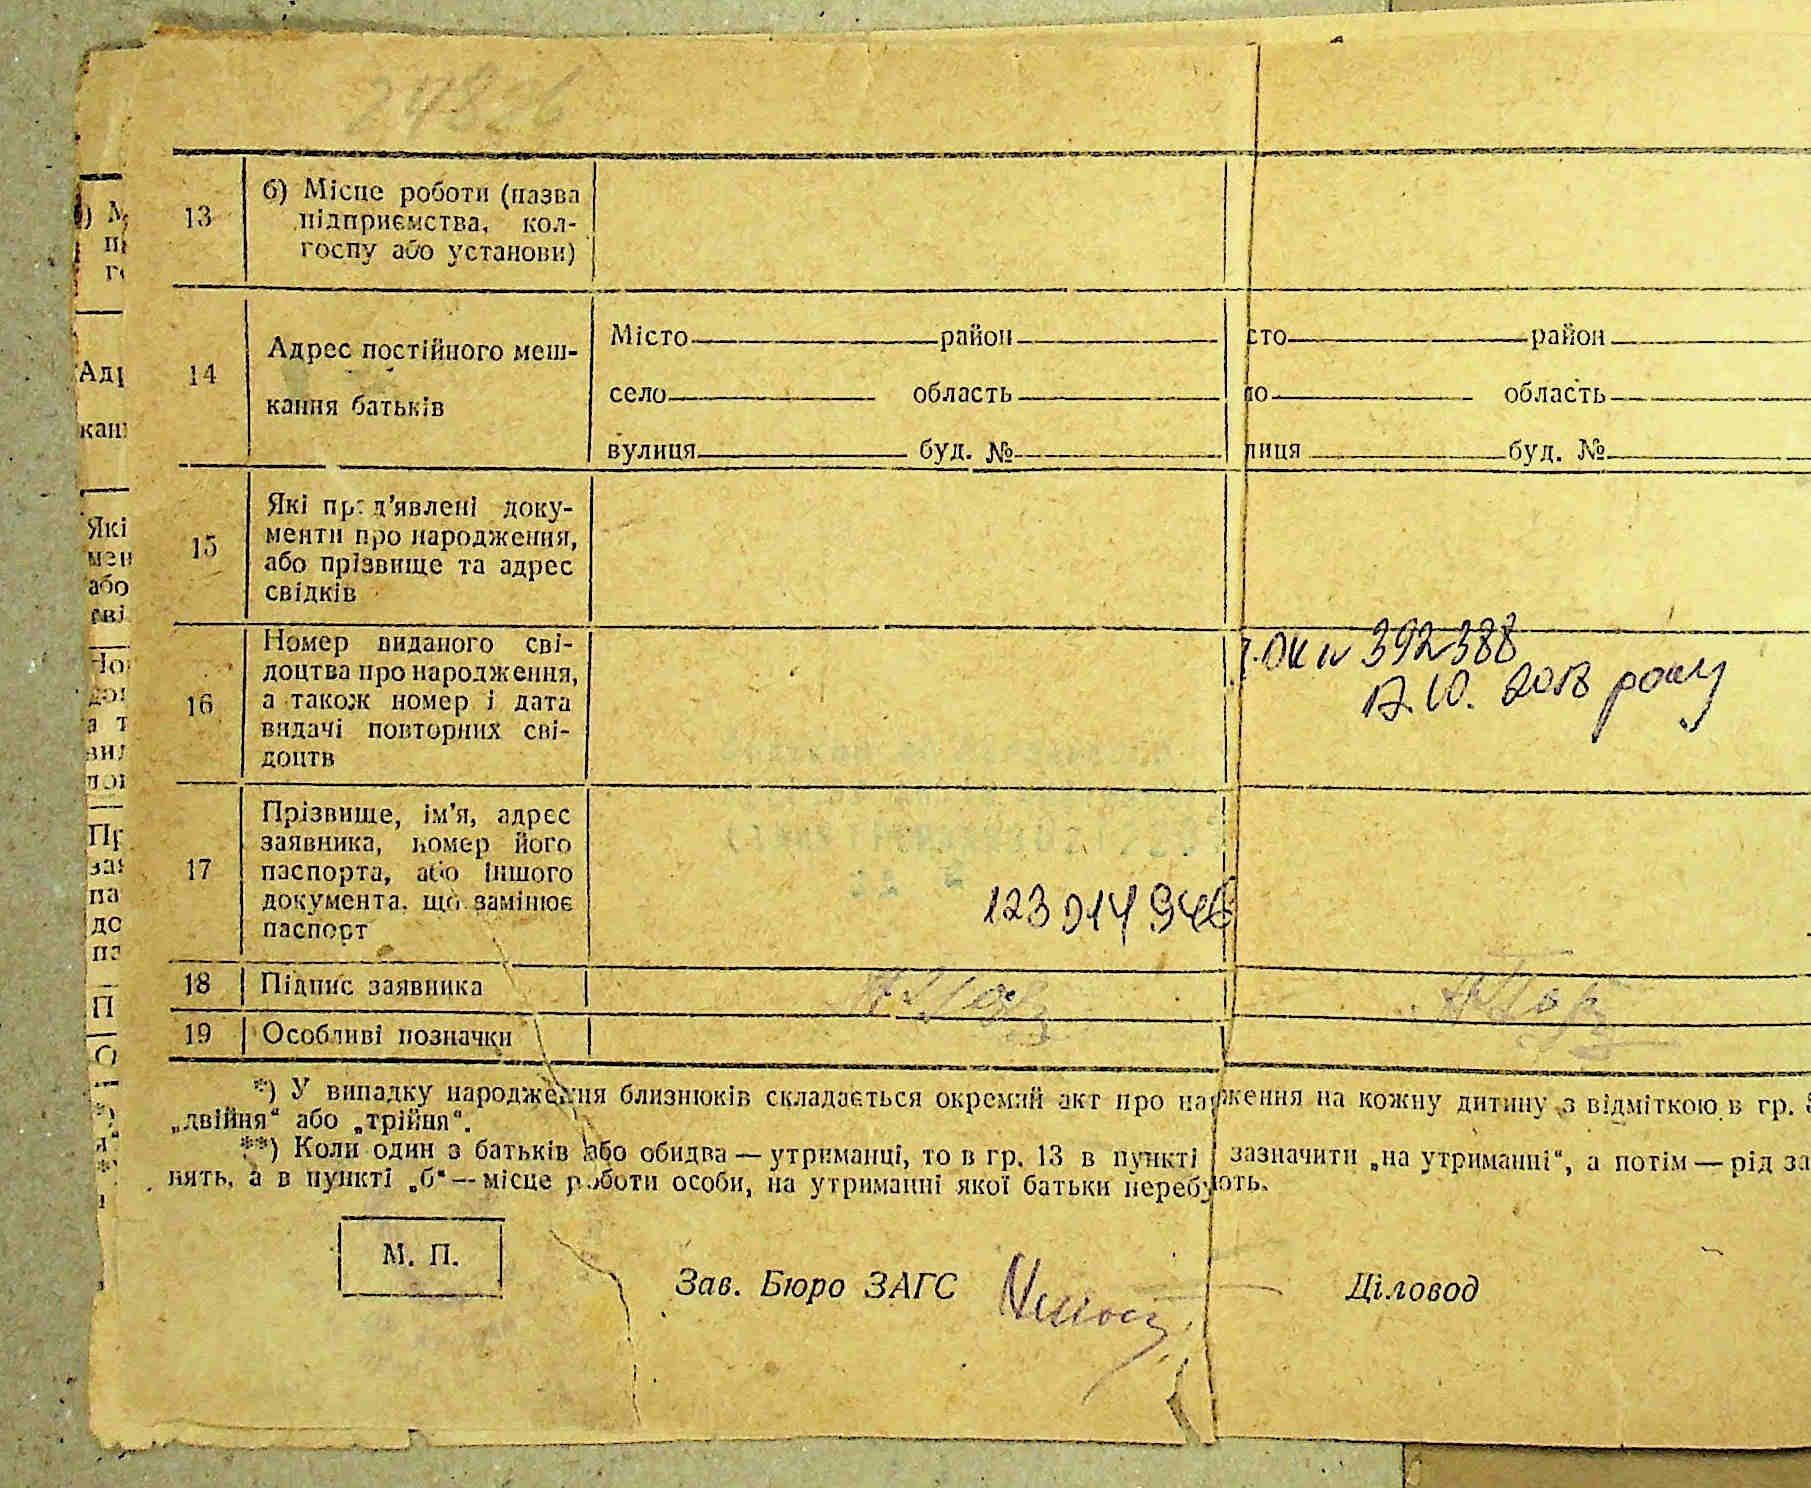 13
б) Місце роботи (назва
підприємства, кол-
госпу або установи)
14
Адрес постійного меш-
кання батьків
Місто район
село область
вулиця буд. №
сто район
ло область
лиця буд. №
15
Які пред’явлені доку-
менти про народження,
або прізвище та адрес
свідків
16
Номер виданого сві-
доцтва про народження,
а також номер і дата
видачі повторних сві-
доцтв
392388
17.10.2018 року
17
Прізвище, ім’я, адрес
заявника, номер його
паспорта, або іншого
документа, що замінює
паспорт
123 014 946
18 Підпис заявника
19 Особливі позначки
*) У випадку народження близнюків складається окремий акт про на ження на кожну дитину з відміткою в гр.
„двійня“ або „трійня“.
**) Коли один з батьків або обидва — утриманці, то в гр. 13 в пункті зазначити „на утриманні“, а потім — рід за
нять, а в пункті „б“ — місце роботи особи, на утриманні якої батьки перебують.
М. П.
Зав. Бюро ЗАГС
Діловод